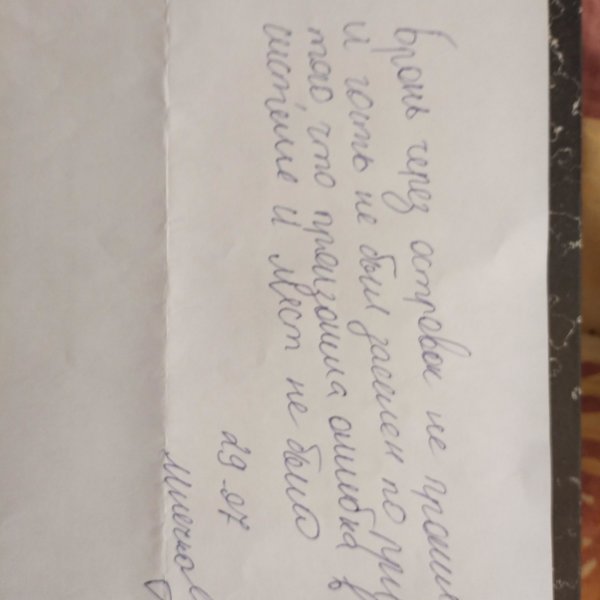 бронь через островок не прошл
и гость не был заселен по при
тао что произошла ошибка в
системе и мест не было
29.07
Милечков